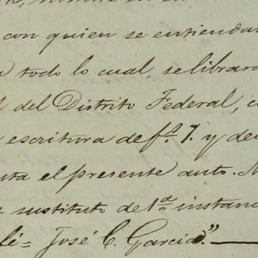 con quien se entiendan
todo lo cual, se librará
del Distrito Federal, c
escritura de f.s 7. y de
ta el presente auto.
sustituto de 1.a instanc
José C. Garcia."